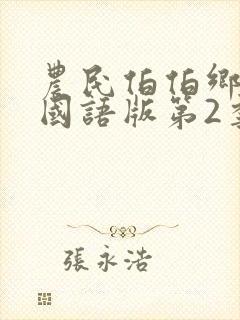 農民伯伯鄉
國語版第2
張永浩